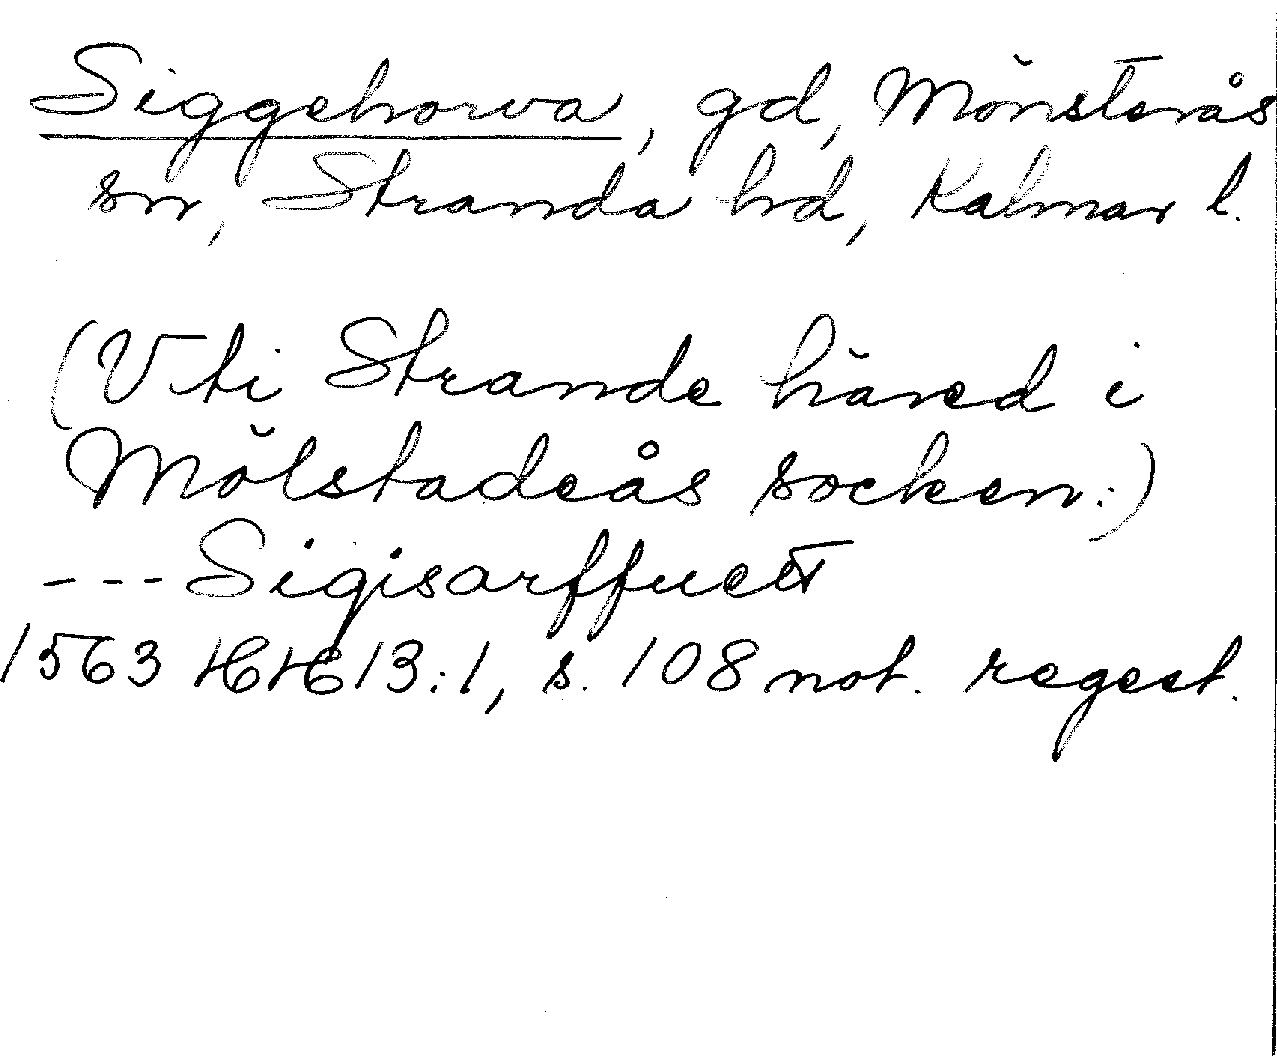 Siggehorva, gd, Mönsterås
sn, Stranda hd, Kalmar l.
(Vti Strande häred i
Mölstadeås socken:)
---Sigisarffuett
1563 HH 13:1, s. 108 not. regest.